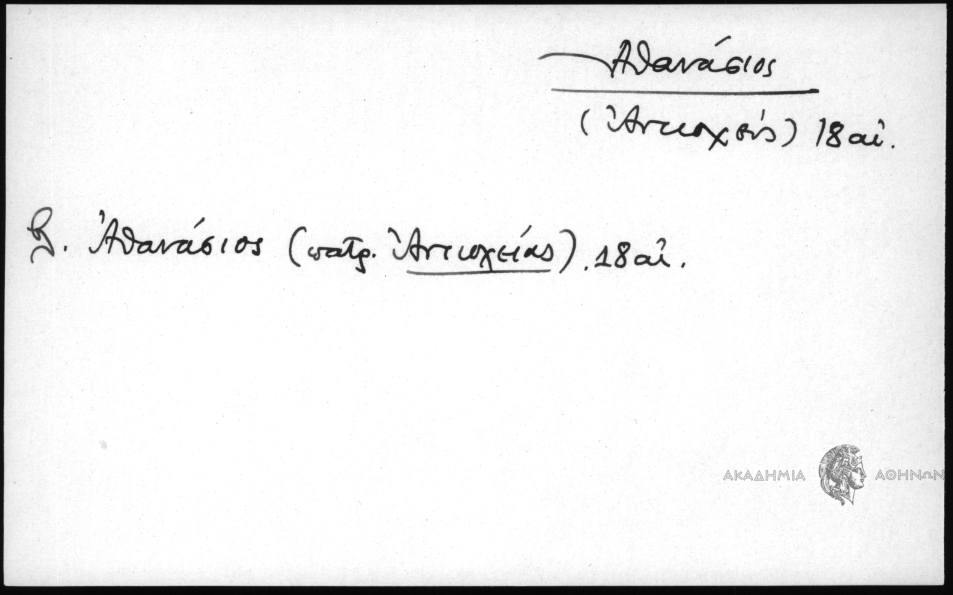 Ἀθανάσιος
(Ἀντιοχεύς) 18 αἰ.
βλ. Ἀθανάσιος (πατρ. Ἀντιοχείας). 18 αἰ.
ΑΚΑΔΗΜΙΑ ΑΘΗΝΩΝ